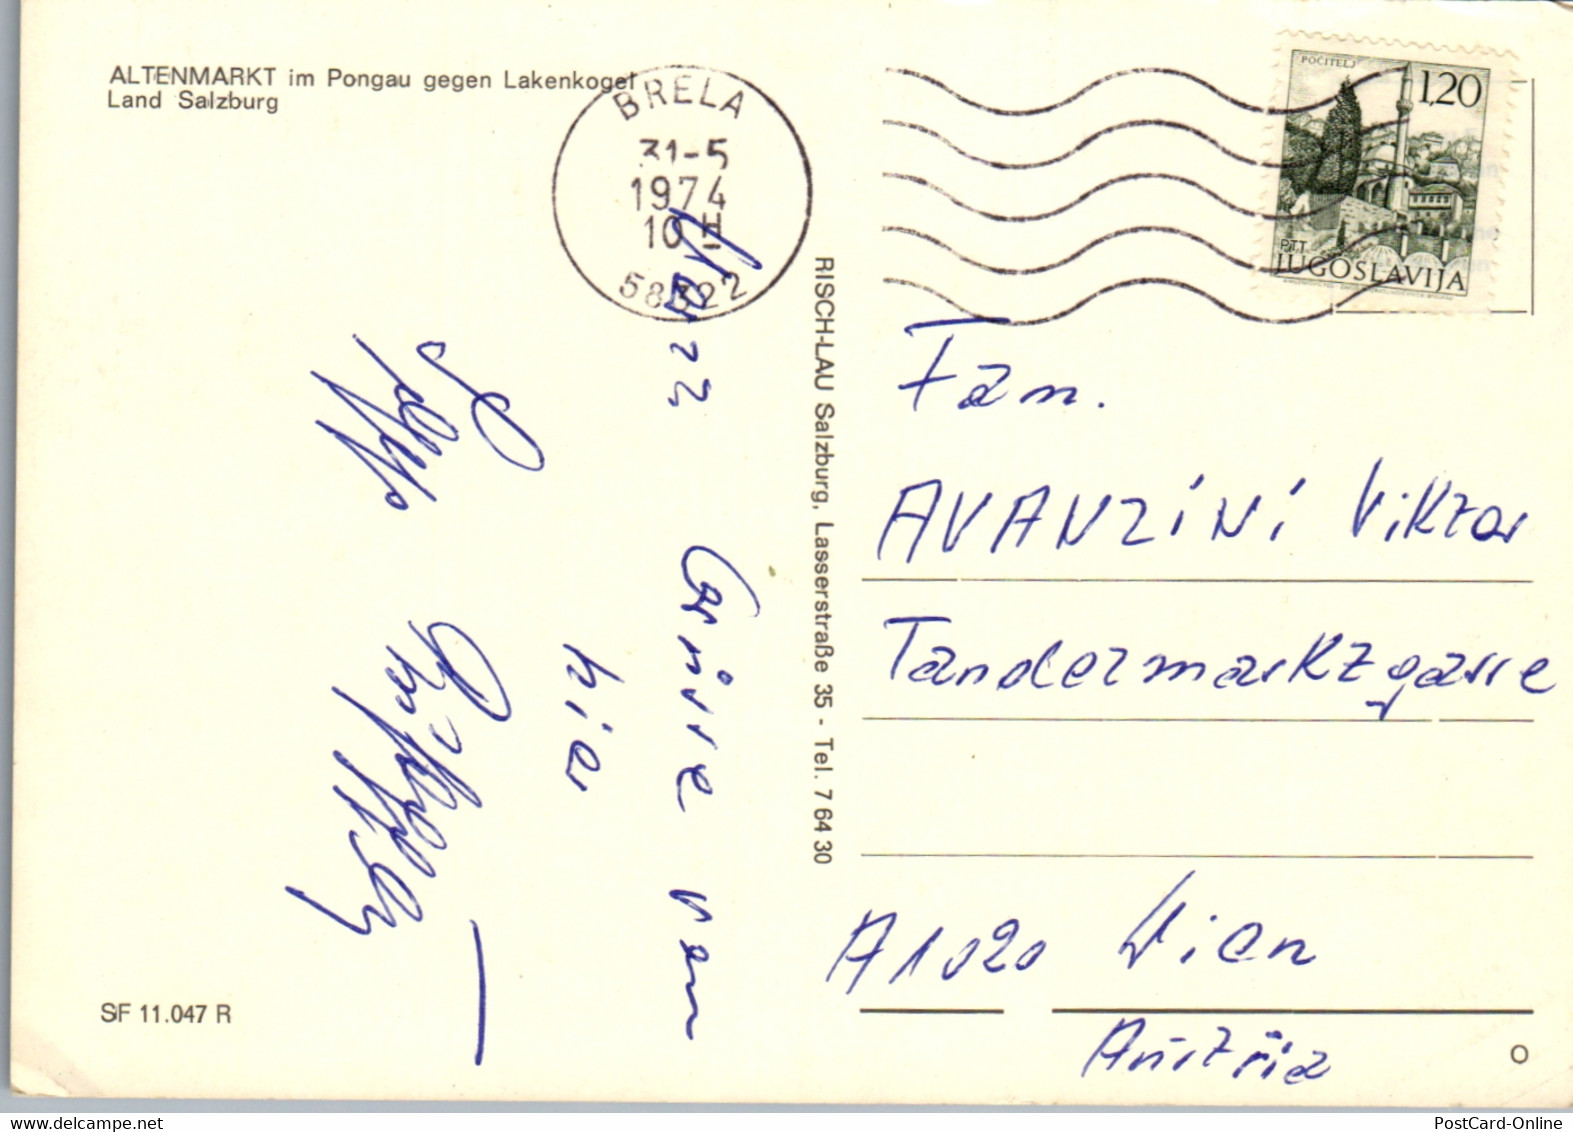 ALTENMARKT im Pongau gegen Lakenkogel
Land Salzburg
BRELA
31-5
1974
10 H
58322
POČITELJ
1,20
PTT
JUGOSLAVIJA
RISCH-LAU Salzburg, Lasserstraße 35 - Tel. 7 64 30
Grüsse von
hier
Fam.
AVANZINI Viktor
Tandelmarktgasse
A 1020 Wien
Austria
SF 11.047 R
O
PostCard-Online